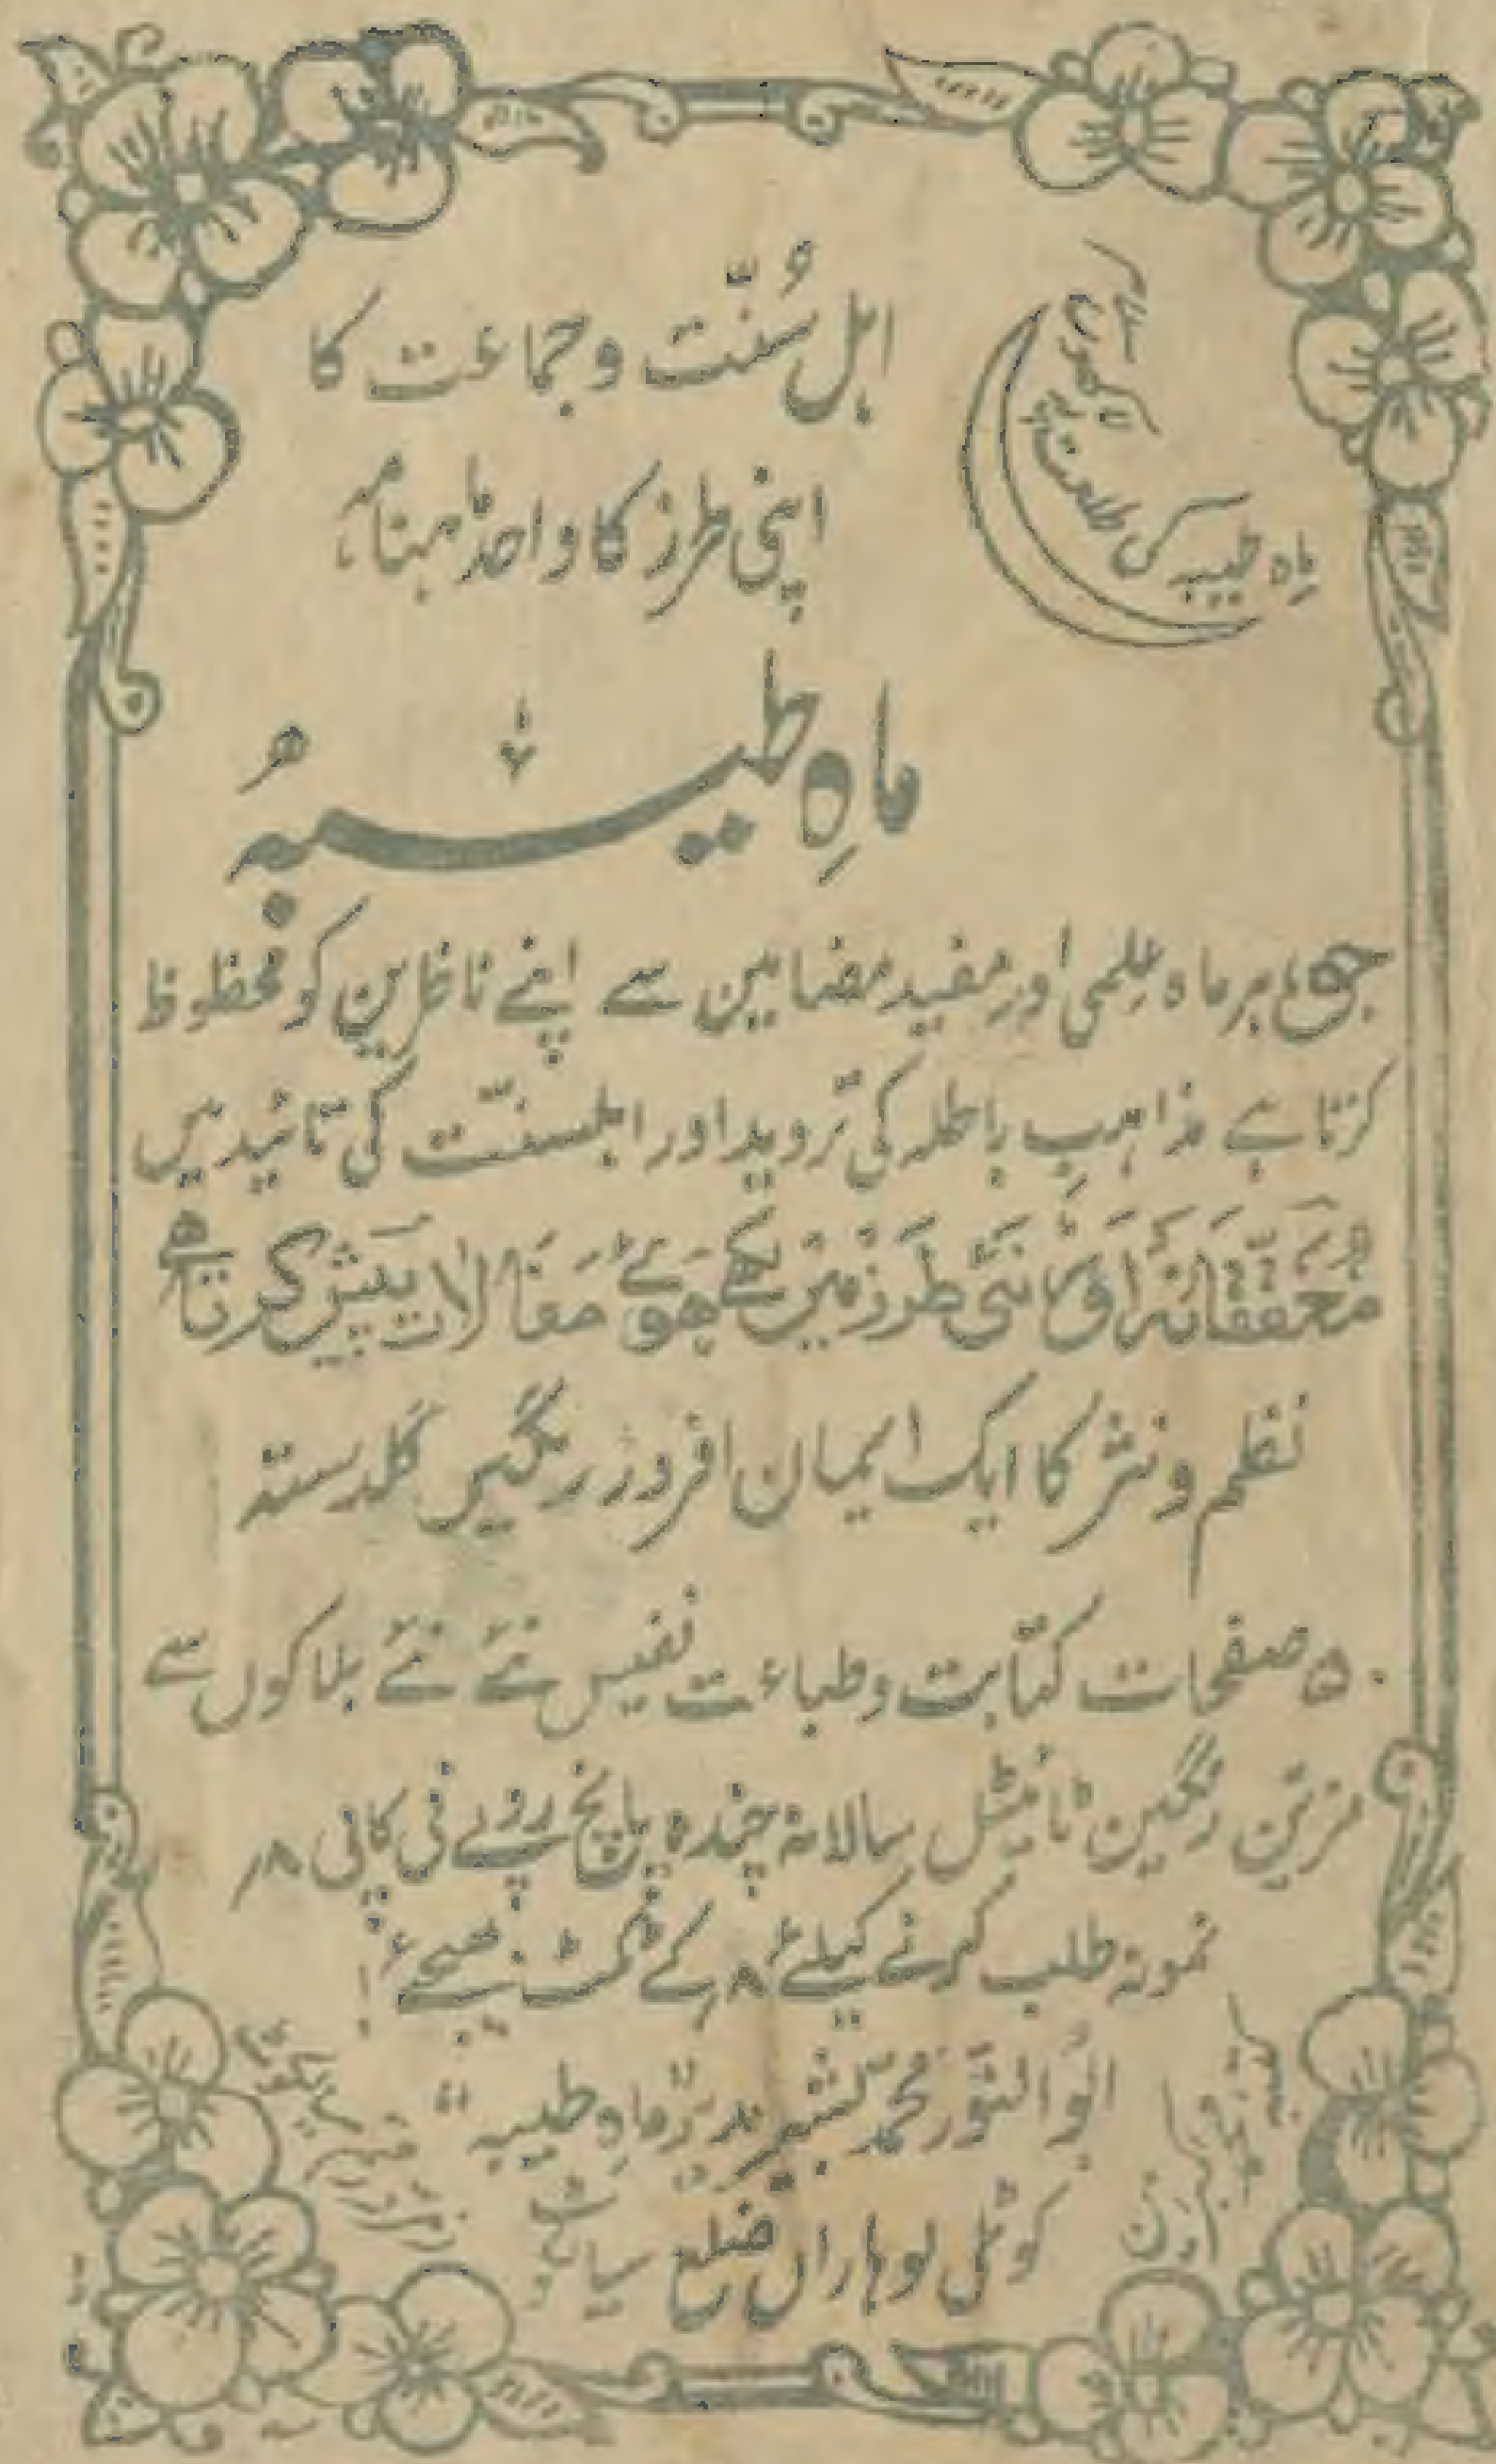 اہل سُنّت و جماعت کا
اپنی طرز کا واحد مہنامہ
ماہ طیبہ کی طلعت
ماہِ طیبہ
جو، ہر ماہ علمی اور مفید مضامین سے اپنے ناظرین کو محظوظ
کرتا ہے مذاہبِ باطلہ کی تردید اور اہلسنّت کی تائید میں
محققانہ اور نئی طرز میں لکھے ہوئے مقالات پیش کرتا ہے
نظم و نثر کا ایک ایمان افروز رنگیں گلدستہ
۵۰ صفحات کتابت و طباعت نفیس نئے نئے بلاکوں سے
مزین رنگین ٹائیٹل سالانہ چندہ پانچ روپے فی کاپی ۸؍
نمونہ طلب کرنے کیلئے ۸؍ کے ٹکٹ بھیجئے!
ابوالنور محمد بشیر مدیر ماہِ طیبہ
کوٹلی لوہاراں ضلع سیالکوٹ